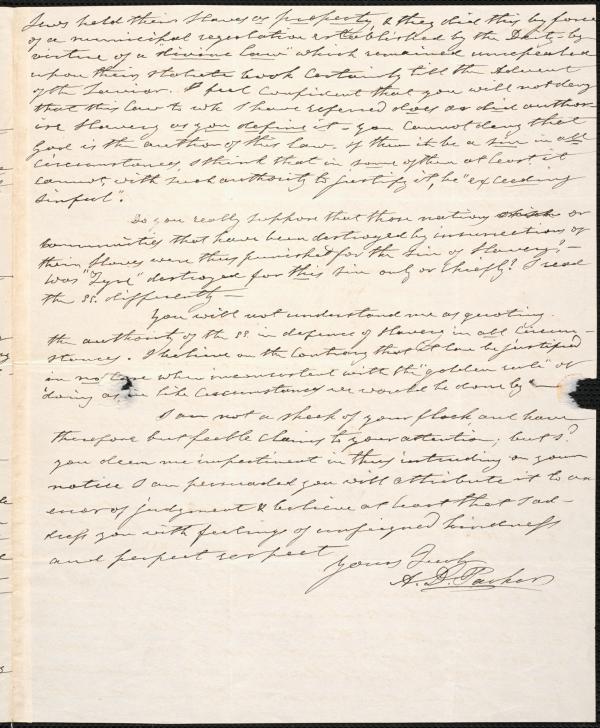 Jews held their slaves as property, & they did this by force
of a municipal regulation established by the Deity by
virtue of a "divine law" which remained unrepealed
upon their statute book certainly till the Advent
of the Savior. I feel confident that you will not deny
that this law to wh I have referred does as did author-
ize slavery as you define it – you cannot deny that
God is the author of this law. If then it be a sin in all
circumstances, I think that in some of them at least it
cannot, with such authority to justify it, be "exceeding
sinful".
Do you really suppose that those nations or
communities that have been destroyed by insurrections of
their slaves were thus punished for the sin of slavery? –
Was "Tyre" destroyed for this sin only or chiefly? I read
the SS. differently –
You will not understand me as quoting
the authority of the SS in defence of slavery in all circum-
stances. I believe on the contrary that it can be justified
in no case when inconsistent with the "golden rule" of
doing as in like circumstances we would be done by –
I am not a sheep of your flock and have
therefore but feeble claims to your attention; but
you deem me impertinent in thus intruding on your
notice I am persuaded you will attribute it to an
error of judgment & believe at least that I ad-
dress you with feelings of unfeigned kindness
and perfect respect
Yours Truly
A. D. Parker